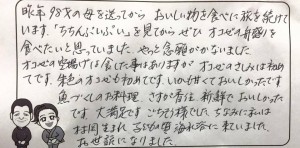 昨年98才の母を送ってから おいしい物を食べに旅を続けて
います。「ちちんぷいぷい」を見てから ぜひ オコゼの舟盛りを
食べたいと思っていました。やっと念願がかないました
オコゼの空揚げは食した事はありますが オコゼのさしみは初め
てです。朱色のオコゼも初めてです。いかが甘くておいしかったです
魚づくしのお料理、さすが香住 新鮮で おいしかった
です 大満足です ごちそう様でした ちなみに私は
村岡生まれ 子どもの頃 海水浴に来ていました。
お世話になりました。